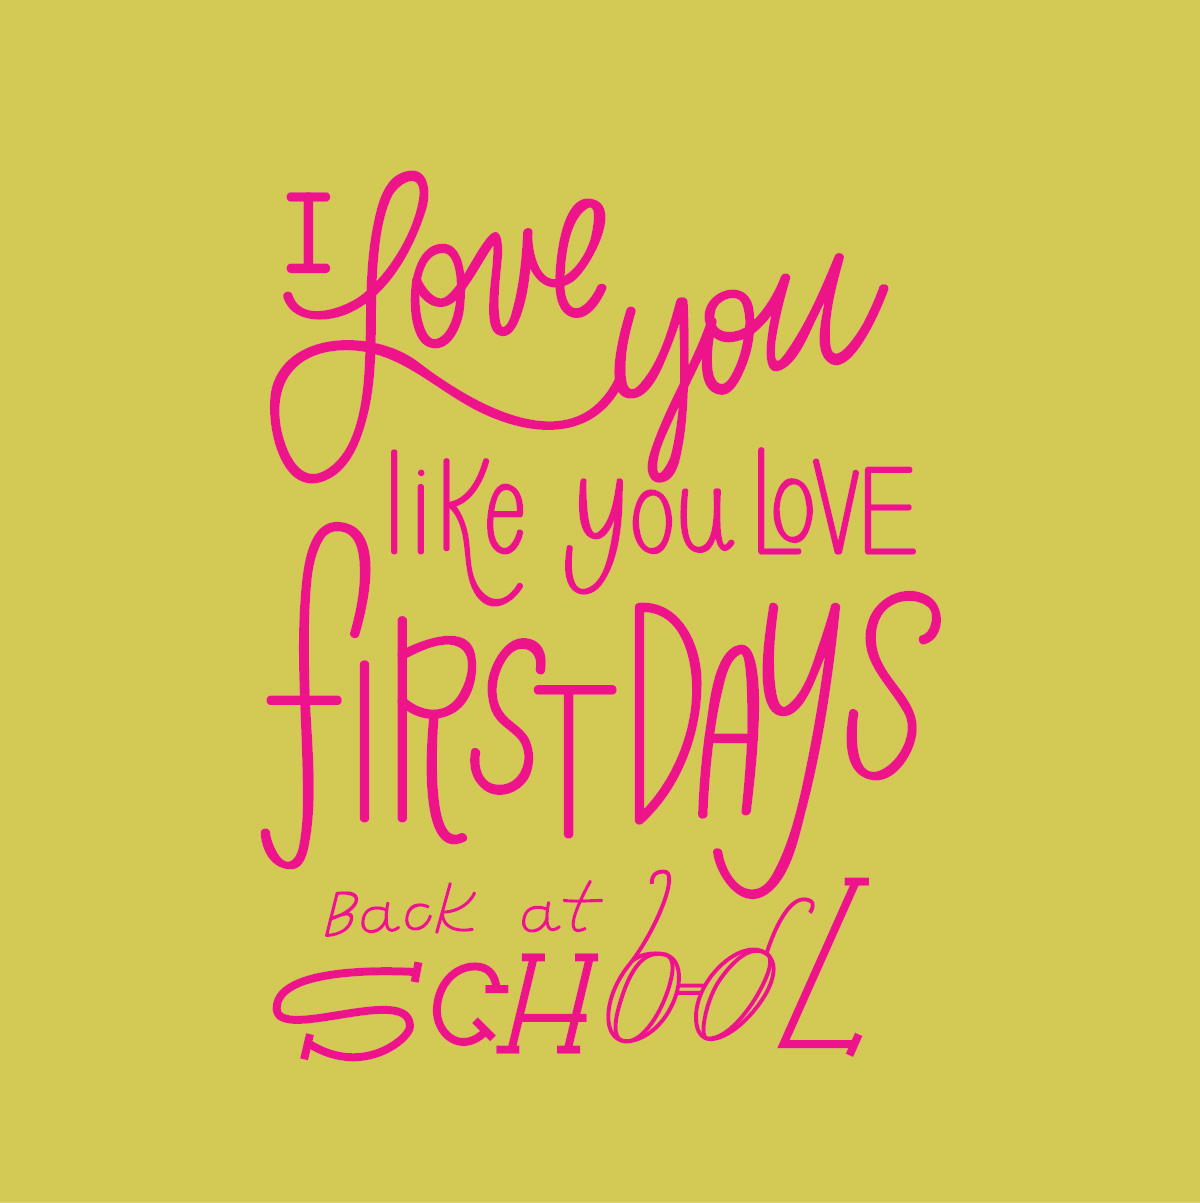 I Love you
like you LOVE
fiRST DAYS
Back at
SCHOOL